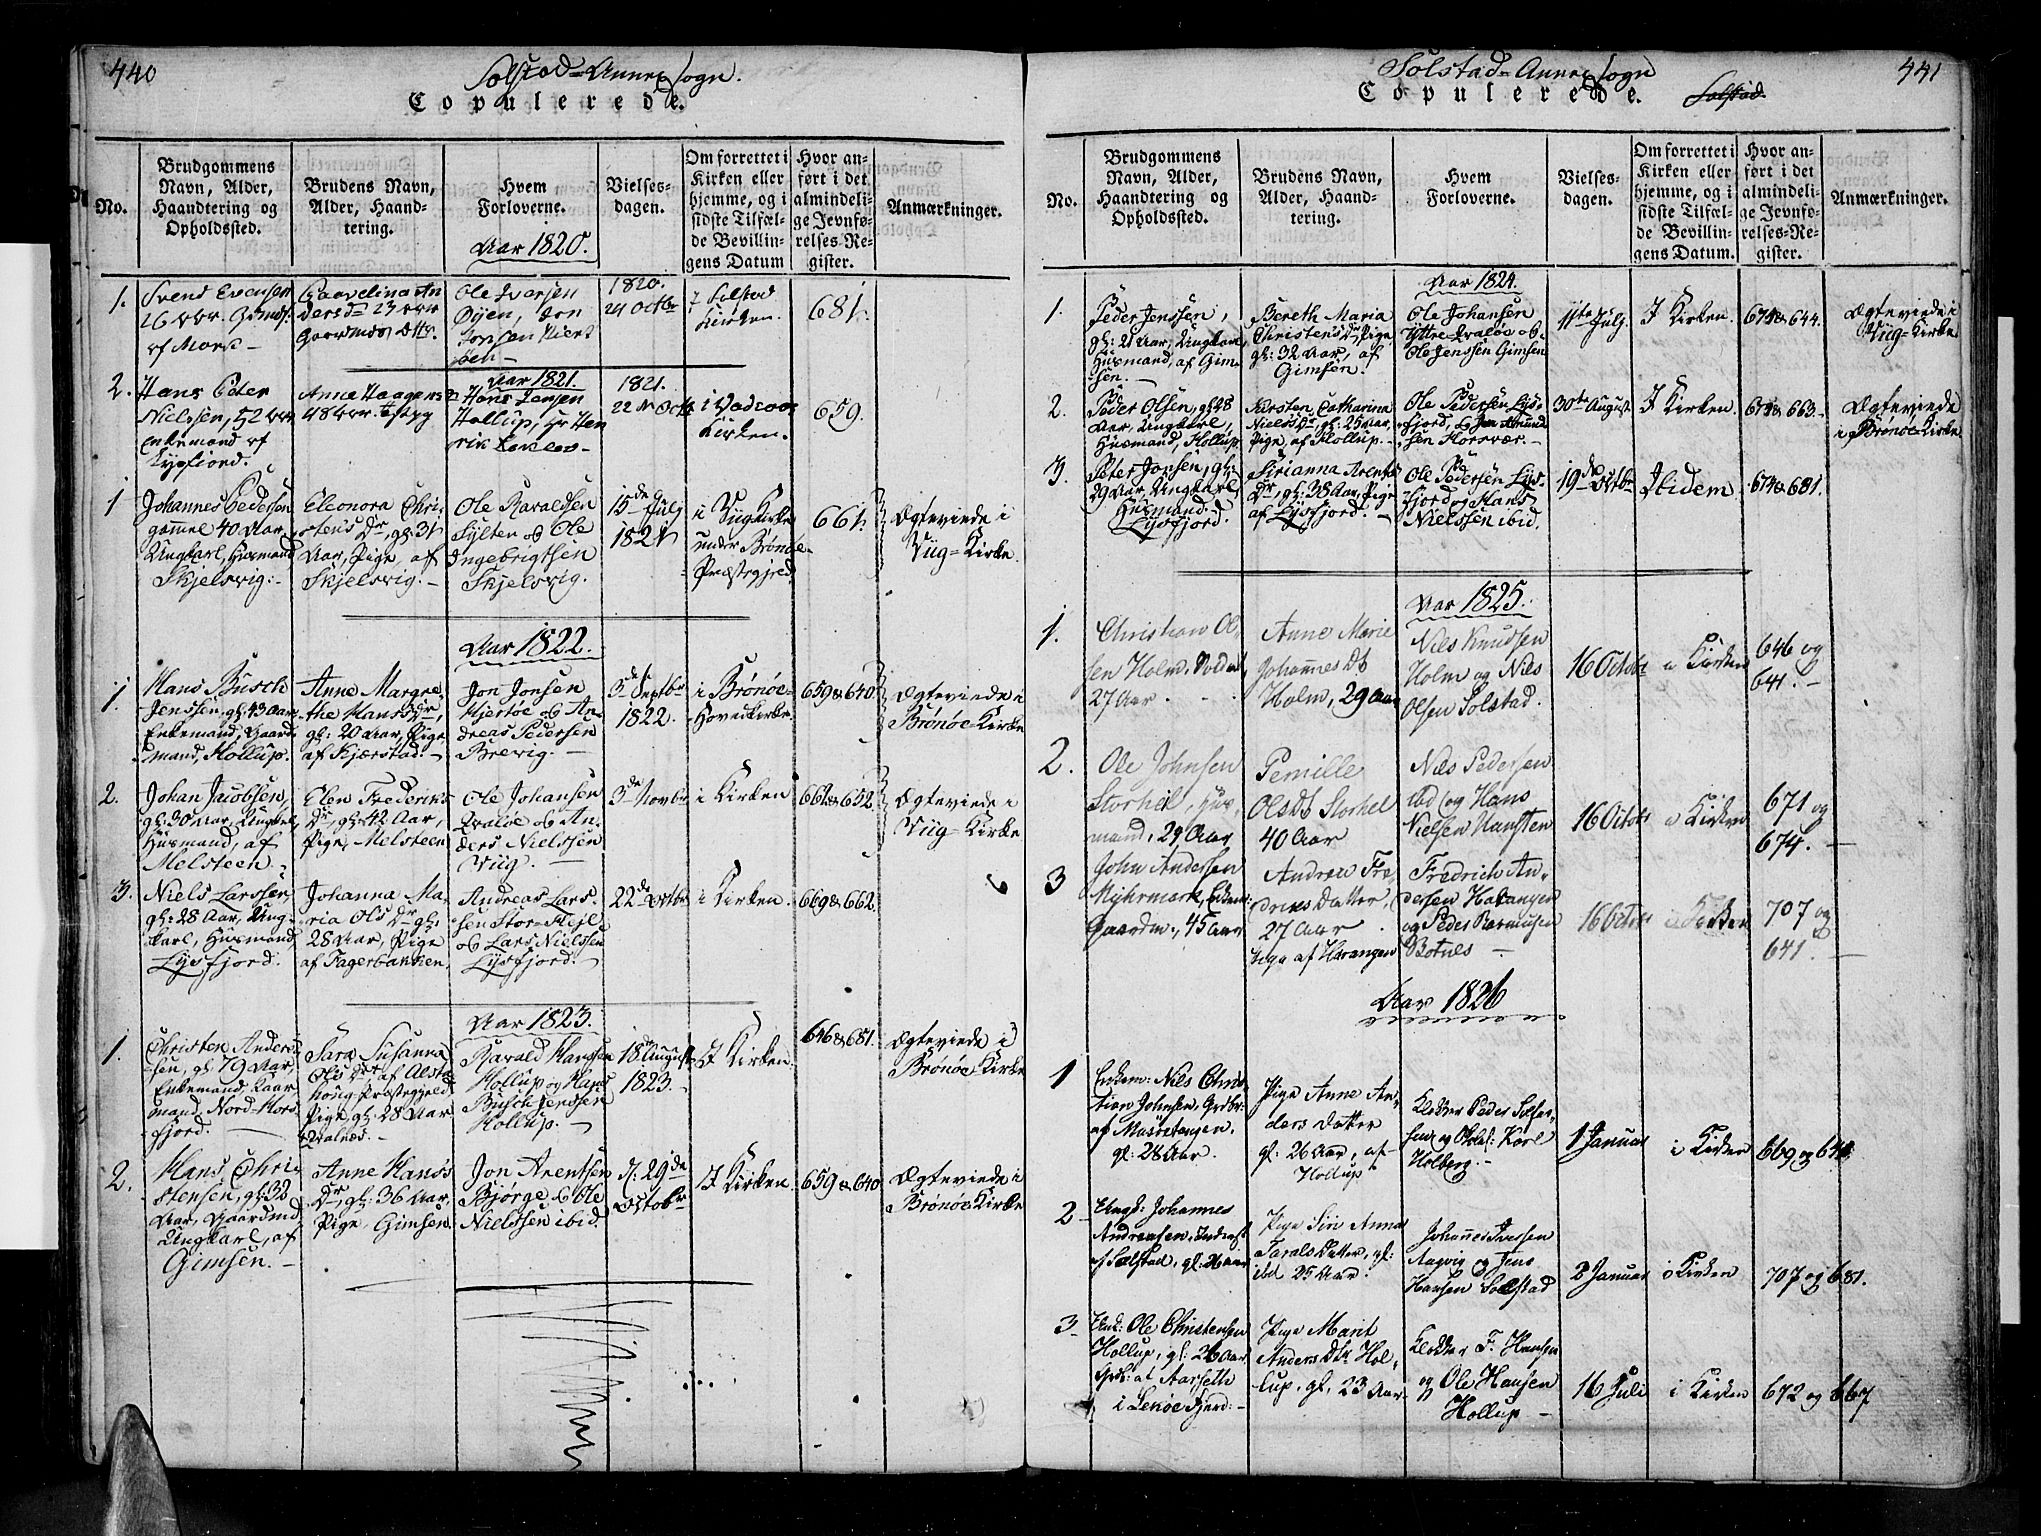 440
Solstad-Annex Sogn.
Copulerede.
No.
Brudgommens
Navn, Alder,
Haandtering og
Opholdssted.
Brudens Navn,
Alder, Haand-
tering.
Hvem
Forloverne.
Vielses-
dagen.
Om forrettet i
Kirken eller
hjemme, og i
sidste Tilfæl-
de Bevillin-
gens Datum
Hvor an-
ført i det
almindeli-
ge Jevnfø-
relses-Re-
gister.
Anmærkninger.
Aar 1820.
1.
Svend
Ole Iversen
1820.
24 Octbr
i Solstad
Kirken.
681.
Aar 1821.
2.
Hans Peter
Nielssen, 52 Aar
Enkemand af
Lysfiord.
Anne Haagens
48 Aar
Hans Jensen
Hollup,
1821.
22 Octb
i
Kirken.
659.
1
Johannes Pedersen
gammel 40 Aar,
Ungkarl, Huusmand
Skjelsvig.
Eleonora Chri-
stens Dr, gl: 31
Aar, Pige, af
Skjelsvig.
Ole Haraldsen
Sylten og Ole
Ingebrigtsen
Skjelsvig.
15de July
1821
i Viig Kirke
under Brønøe-
Præstegjeld
661.
Ægteviede i
Viig-Kirke.
Aar 1822.
1.
Hans Busch
Jenssen, gl: 43 Aar,
Enkemand, Gaard-
mand, Hollup.
Anne Margre-
the Hans Dr,
gl: 20 Aar, Pige
af Kjærstad.
Jon Jonsen
Hjertøe og An-
dreas Pedersen
Brevig.
3de Septbr
1822.
i Brønøe-
Hovedkirke
659 & 640.
Ægteviede i
Brønøe Kirke
2.
Johan Jacobsen,
gl: 30 Aar, Ungkarl,
Huusmand, af
Melsteen.
Elen Frederiks
Dr, gl: 42 Aar,
Pige, Melsteen
Ole Johansen
Qvaløe og An-
ders Nielssen
Viig.
3de Novbr
i Kirken
661 & 652.
Ægteviede i
Viig-Kirke
3.
Niels Larssen,
gl: 28 Aar, Ung-
karl, Huusmand
Lysfjord.
Johanna Ma-
ria Ols Dr, gl:
28 Aar, Pige
af Fagerbakken.
Andreas Lars-
sen Stor-Hejl
og Lars Nielssen
Lysfjord.
22de Octbr
i Kirken.
669 & 662.
Aar 1823.
1.
Christen Anders-
sen, gl: 79 Aar,
Enkemand, Gaar-
mand, Nord-Hors-
fjord.
Sara Susanna
Ols Dr af Alsta-
houg-Præstegjeld
Pige, gl: 28 Aar
Harald Hanssen
Hollup og Hans
Busch Jenssen
Hollup.
18de August
1823.
I Kirken.
646 & 681.
Ægteviede i
Brønøe Kirke
2.
Hans Chri-
stensen, gl: 32
Aar, Gaardmd
Ungkarl, af
Gimsen.
Anne Hans's
Dr, gl: 36 Aar,
Pige, Gimsen.
Jon Arenssen
Bjørge & Ole
Nielssen ibid.
d: 29de
Octobr
I Kirken.
659 & 640
Ægteviede i
Brønøe Kirke
441
Solstad-Annex Sogn
Copulerede.
Solstad
No.
Brudgommens
Navn, Alder,
Haandtering og
Opholdssted.
Brudens Navn,
Alder, Haand-
tering.
Hvem
Forloverne.
Vielses-
dagen.
Om forrettet i
Kirken eller
hjemme, og i
sidste Tilfæl-
de Bevillin-
gens Datum.
Hvor an-
ført i det
almindeli-
ge Jevnfø-
relses-Re-
gister.
Anmærkninger.
Aar 1824.
1.
Peder Jenssen,
gl: 21 Aar, Ungkarl,
Huusmand, af Gim-
sen.
Bereth Maria
Christens Dr, Pige,
gl: 32 Aar, af
Gimsen.
Ole Johansen,
Yttre-Qvaløe og
Ole Jenssen Gimsen
11te July.
I Kirken.
674 & 644.
Ægteviede i
Viig-Kirke
2.
Peder Olsen, gl: 48
Aar, Ungkarl,
Huusmand, Hollup.
Kirsten Catharina
Niels Dr, gl: 25 Aar,
Pige, af Hollup.
Ole Pedersen Lys-
fjord, og Jon Amund-
sen Horsvær.
30te August
I Kirken.
674 & 663.
Ægteviede
i Brønøe Kirke
3.
Peter Jonsen, gl:
29 Aar, Ungkarl,
Huusmand,
Lysfjord.
Sirianna Arents
Dr, gl: 38 Aar, Pige
af Lysfjord.
Ole Pedersen Lys-
fjord og Hans
Nielssen ibid.
19de Octbr
Ibidem
674 & 681.
Aar 1825.
1.
Christian Ol-
sen Holm, Soldat
27 Aar
Anne Marie
Johannes Dt
Holm, 29 Aar
Nils Knudsen
Holm og Nils
Olsen Solstad.
16 Octobr
i Kirken
646 og
641.
2.
Ole Johnsen
Storhel, Huus-
mand, 29 Aar
Pernille
Ols Dt Storhel
40 Aar
Nils Pedersen
ibd og Hans
Nielsen Hansten
16 Octobr
i Kirken
671 og
674.
3
John Andersen
Myhrmark, Enkem:
Gaardm:, 45 Aar
Andrea Fre-
driks Datter,
27 Aar
Pige af Harangen
Fredrich An-
dersen Harangen
og Peder Rasmusen
Botnes
16 Octobr
i Kirken
707 og
641.
Aar 1826
1
Enkem: Nils Chris-
tian Johnsen, Grdbr:
gl: 28 Aar.
Pige Anne An-
ders Datter
gl: 26 Aar, af
Hollup
Klokker Peder
Holberg.
1 Januar
i Kirken
669 og 641.
2
Ungk: Johannes
Andreasen, Inderst
af Solstad, gl:
Pige Siri Anna
Tarals Datter, gl:
ibd 25 Aar.
Johannes Iversen
Aagvig og Jens
Hansen Solstad
2 Januar
i Kirken
707 og 681.
3
Enk: Ole Christensen
Hollup, gl: 26 Aar
Grdbr: af Aarseth
i Lekøe Fjerd:
Pige Marit
Anders Dtr Hol-
lup, gl. 23 Aar.
Klokker F. Hansen
og Ole Hansen
Hollup
16 Juli
i Kirken
672 og 667